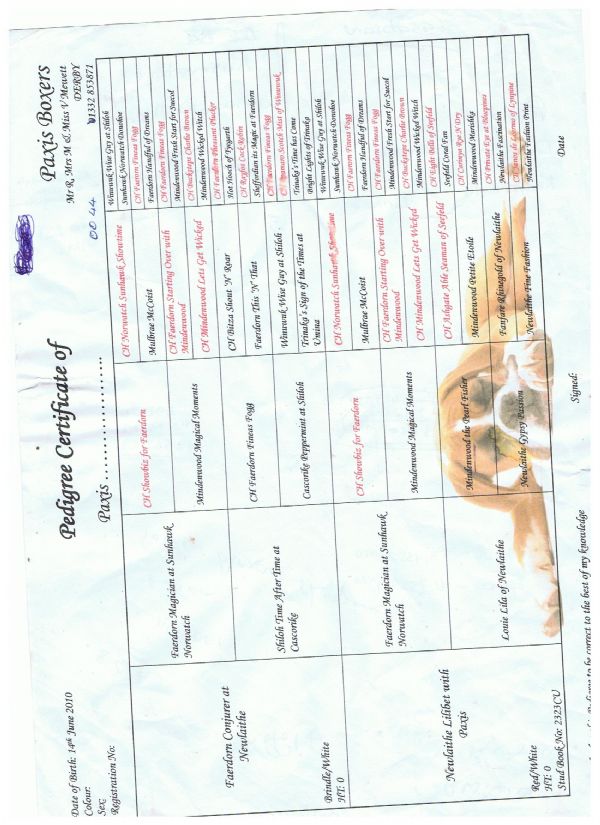 Pedigree Certificate of
Paxis Boxers
Mr R, Mrs M & Miss V Mewett
DERBY
01332 853871
00 44
Paxis
Date of Birth: 14th June 2010
Colour:
Sex:
Registration No:
Faerdorn Conjurer at
Newlaithe
Brindle/White
HT: 0
Newlaithe Lilibet with
Paxis
Red/White
HT: 0
Stud Book No: 2323CU
Faerdorn Magician at Sunhawk
Norwatch
Shiloh Time After Time at
Cascorike
Faerdorn Magician at Sunhawk
Norwatch
Louie Lila of Newlaithe
CH Showbiz for Faerdorn
Mindenwood Magical Moments
CH Faerdorn Fineas Fogg
Cascorike Peppermint at Shiloh
CH Showbiz for Faerdorn
Mindenwood Magical Moments
Mindenwood the Pearl Fisher
Newlaithe Gypsy Passion
CH Norwatch Sunhawk Showtime
Mulbrae McCoist
CH Faerdorn Starting Over with
Mindenwood
CH Mindenwood Lets Get Wicked
CH Bitza Shout 'N' Roar
Faerdorn This 'N' That
Winuwuk Wise Guy at Shiloh
Trinaka's Sign of the Times at
CH Norwatch Sunhawk Showtime
Mulbrae McCoist
CH Faerdorn Starting Over with
Mindenwood
CH Mindenwood Lets Get Wicked
CH Ashgate Able Seaman of Seefeld
Mindenwood Petite Etoile
Fanfare Rhinegold of Newlaithe
Newlaithe Fine Fashion
Winuwuk Wise Guy at Shiloh
Sunhawk Norwatch Donohoe
CH Faerdorn Fineas Fogg
Faerdorn Handful of Dreams
CH Faerdorn Fineas Fogg
Mindenwood Fresh Start for Suecol
CH Buckstops Charlie Brown
Mindenwood Wicked Witch
CH Faerdorn Pheasant Plucker
Hot Hooch of Tyegarth
CH Rayfos Cock Robin
Sheffordian its Magic at Faerdorn
CH Faerdorn Fineas Fogg
Trinaka's Time has Come
Bright Lights of Trinaka
Winuwuk Wise Guy at Shiloh
Sunhawk Norwatch Donohoe
CH Faerdorn Fineas Fogg
Faerdorn Handful of Dreams
CH Faerdorn Fineas Fogg
Mindenwood Fresh Start for Suecol
CH Buckstops Charlie Brown
Mindenwood Wicked Witch
CH Eight Bells of Seefeld
Seefeld Coral Fan
Mindenwood Mareishka
Newlaithe Fascination
Newlaithe Fashion Print
to be correct to the best of my knowledge
Signed:
Date